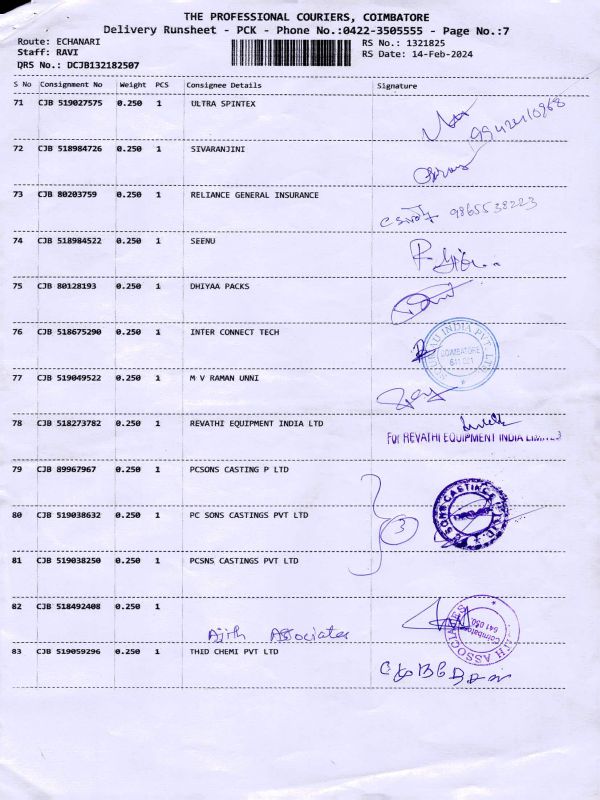 THE PROFESSIONAL COURIERS, COIMBATORE
Delivery Runsheet - PCK - Phone No.:0422-3505555 - Page No.:7
Route: ECHANARI
Staff: RAVI
DRS No.: DCJB132182507
RS No.: 1321825
RS Date: 14-Feb-2024
S No Consignment No Weight PCS Consignee Details Signature
71 CJB 519027575 0.250 1 ULTRA SPINTEX
72 CJB 518984726 0.250 1 SIVARANJINI
73 CJB 80203759 0.250 1 RELIANCE GENERAL INSURANCE
9865538223
74 CJB 518984522 0.250 1 SEENU
75 CJB 80128193 0.250 1 DHIYAA PACKS
76 CJB 518675290 0.250 1 INTER CONNECT TECH
INDIA PVT LTD
COIMBATORE
641 021
77 CJB 519049522 0.250 1 M V RAMAN UNNI
78 CJB 518273782 0.250 1 REVATHI EQUIPMENT INDIA LTD
For REVATHI EQUIPMENT INDIA LIMITED
79 CJB 89967967 0.250 1 PCSONS CASTING P LTD
80 CJB 519038632 0.250 1 PC SONS CASTINGS PVT LTD
3
SONS CASTINGS
81 CJB 519038250 0.250 1 PCSNS CASTINGS PVT LTD
82 CJB 518492408 0.250 1
Ajith Associates
ASSOCIATES
Coimbatore
641 050
83 CJB 519059296 0.250 1 THID CHEMI PVT LTD